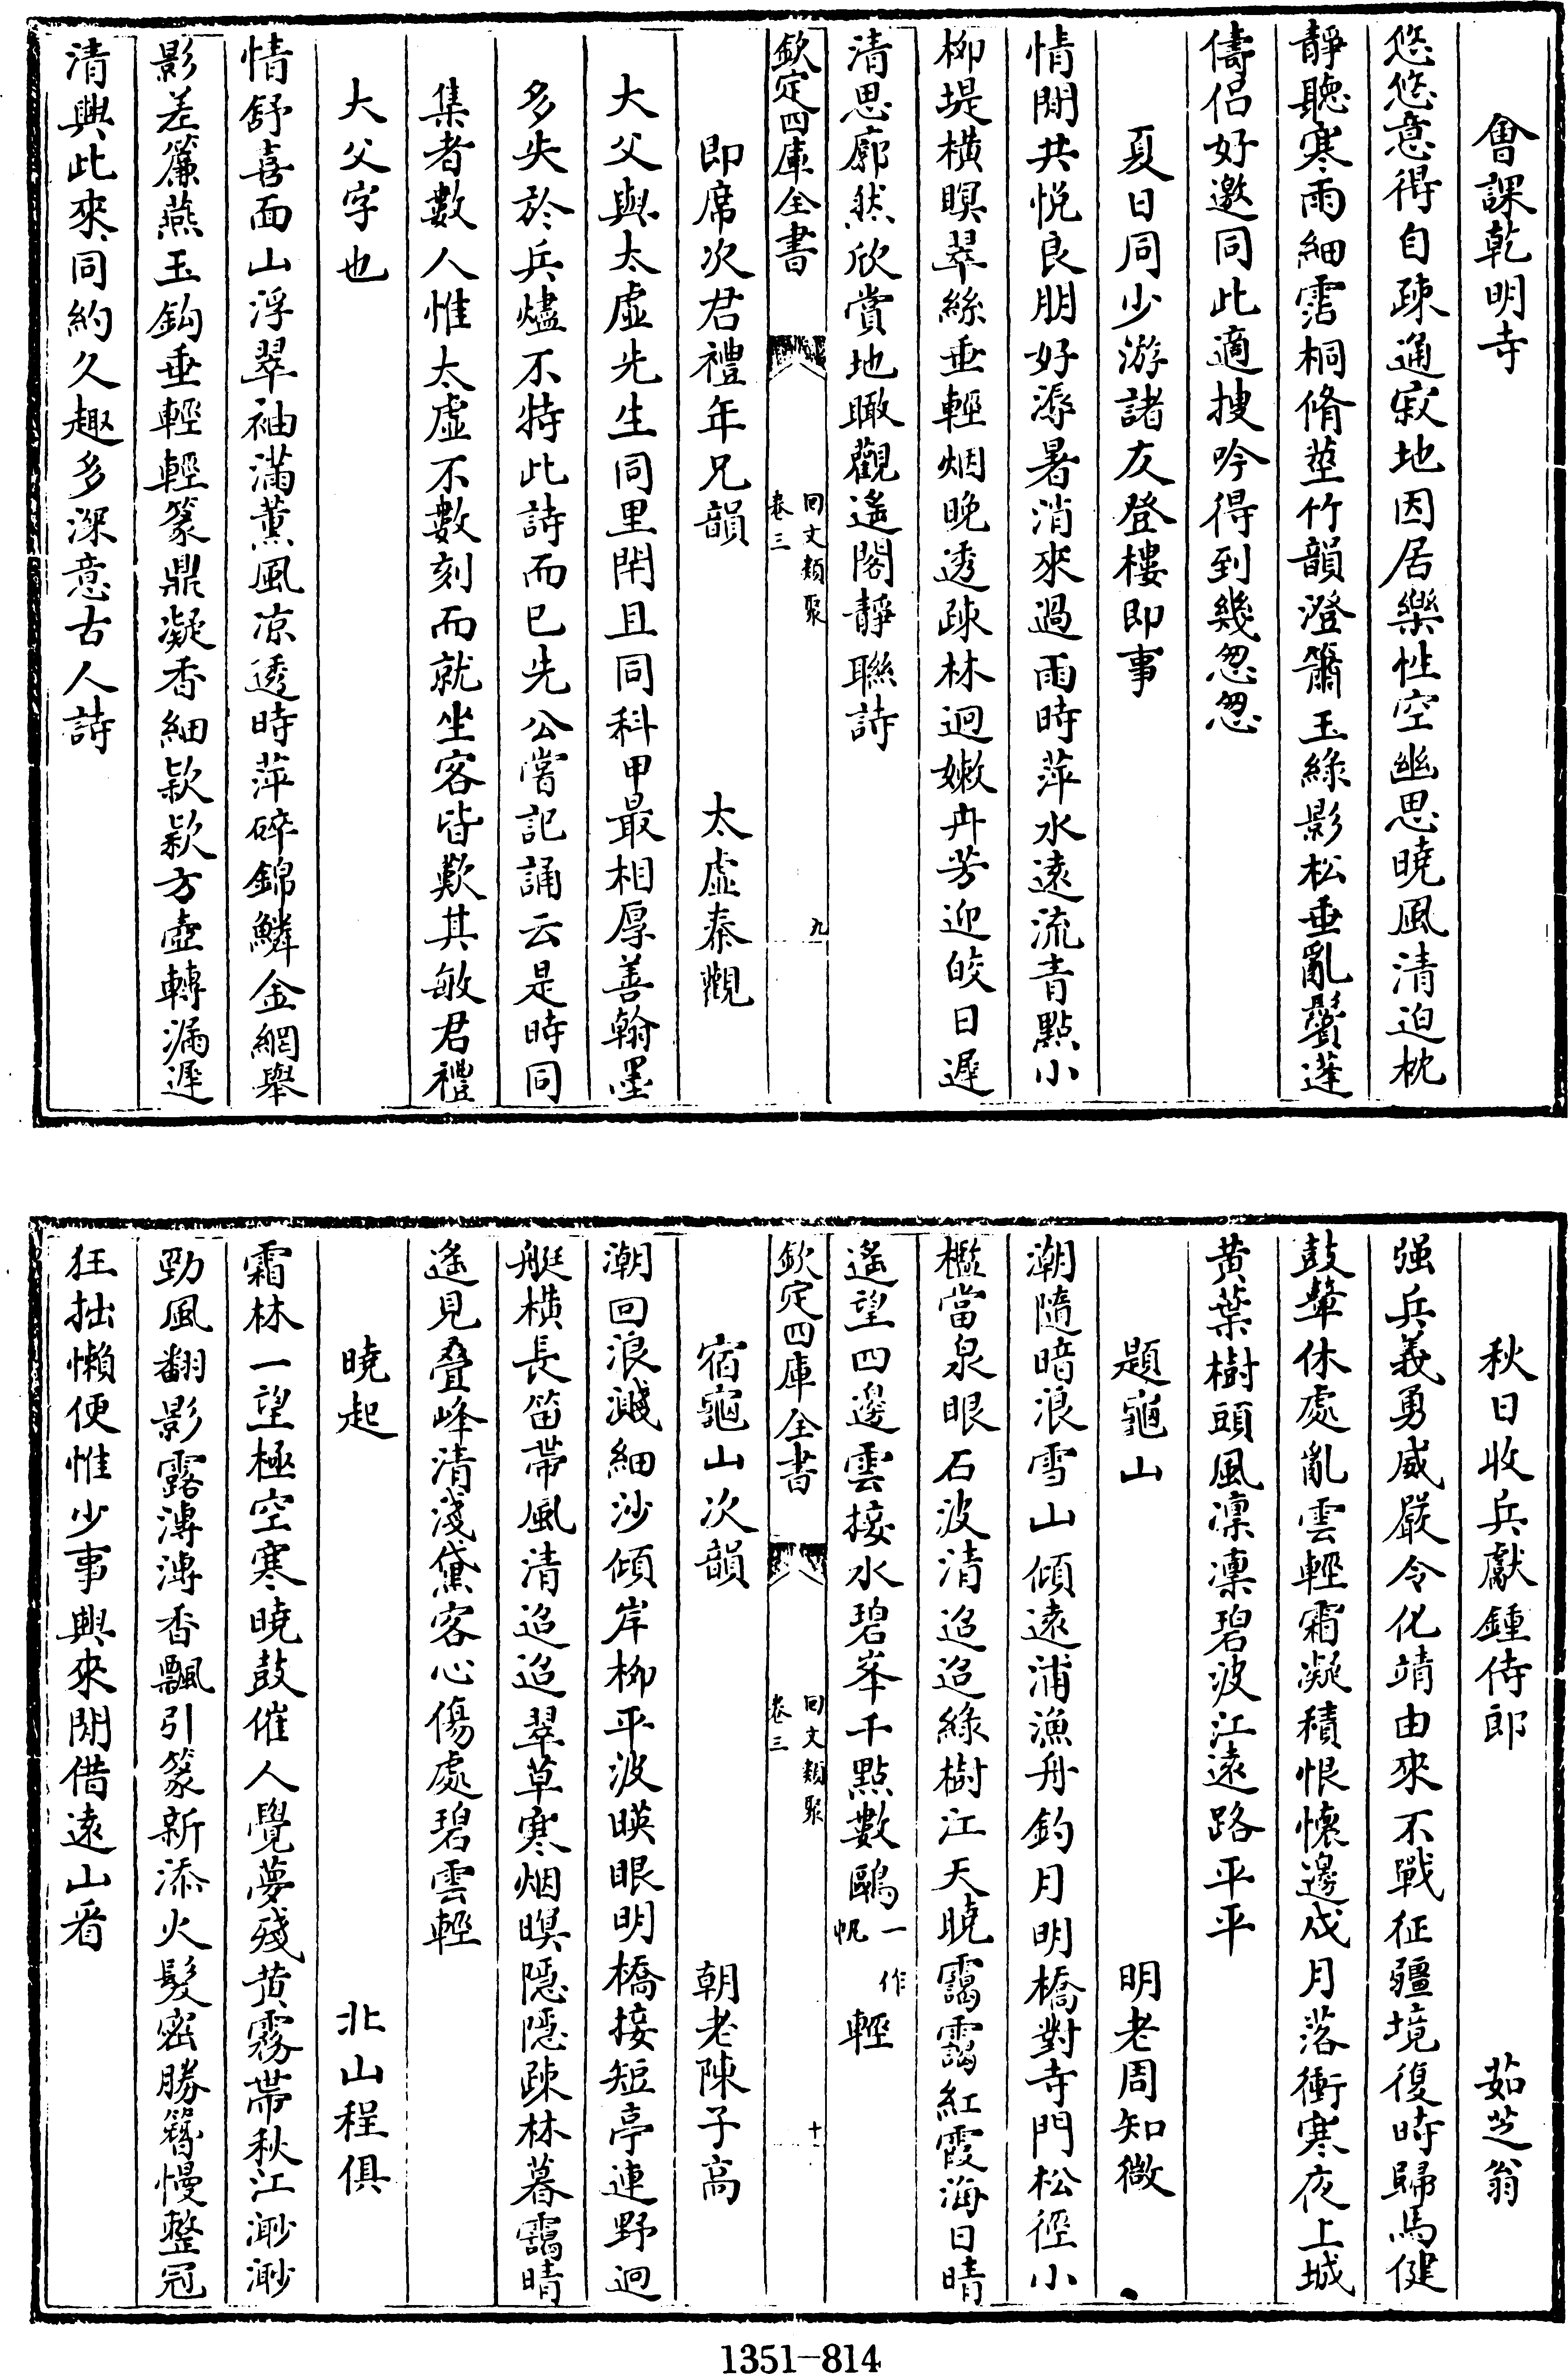 會課乾明寺
悠悠意得自疎通寂地因居樂性空幽思曉風清迫枕
靜聽寒雨細霑桐脩莖竹韻澄簫玉綠影松垂亂鬢蓬
儔侶好邀同此適搜吟得到幾怱怱
夏日同少游諸友登樓即事
情閒共悅良朋好溽暑消來過雨時萍水遠流青點小
柳堤橫暝翠絲垂輕烟晚透疎林迥嫩卉芳迎皎日遲
清思廓然欣賞地瞰觀遙閣靜聯詩
欽定四庫全書
回文類聚
卷三
九
即席次君禮年兄韻 太虛秦觀
大父與太虛先生同里閈且同科甲最相厚善翰墨
多失於兵燼不特此詩而已先公嘗記誦云是時同
集者數人惟太虛不數刻而就坐客皆歎其敏君禮
大父字也
情舒喜面山浮翠袖滿薰風凉透時萍碎錦鱗金網舉
影差簾燕玉鈎垂輕輕篆鼎凝香細款款方壺轉漏遲
清興此來同約久趣多深意古人詩
秋日收兵獻鍾侍郎 茹芝翁
强兵義勇威嚴令化靖由來不戰征疆境復時歸馬健
鼓鼙休處亂雲輕霜凝積恨懷邊戍月落衝寒夜上城
黄葉樹頭風凛凛碧波江遠路平平
題龜山 明老周知微
潮隨暗浪雪山傾遠浦漁舟釣月明橋對寺門松徑小
檻當泉眼石波清迢迢綠樹江天曉靄靄紅霞海日晴
遙望四邊雲接水碧峯千點數鷗一作帆輕
欽定四庫全書
回文類聚
卷三
十
宿龜山次韻 朝老陳子高
潮回浪濺細沙傾岸柳平波暎眼明橋接短亭連野迥
艇橫長笛帶風清迢迢翠草寒烟暝隱隱疎林暮靄晴
遙見叠峰清淺黛客心傷處碧雲輕
曉起 北山程俱
霜林一望極空寒曉鼓催人覺夢殘黄霧帶秋江渺渺
勁風翻影露漙漙香飄引篆新添火髮密勝簪慢整冠
狂拙懶便惟少事興來閒借遠山看
1351-814